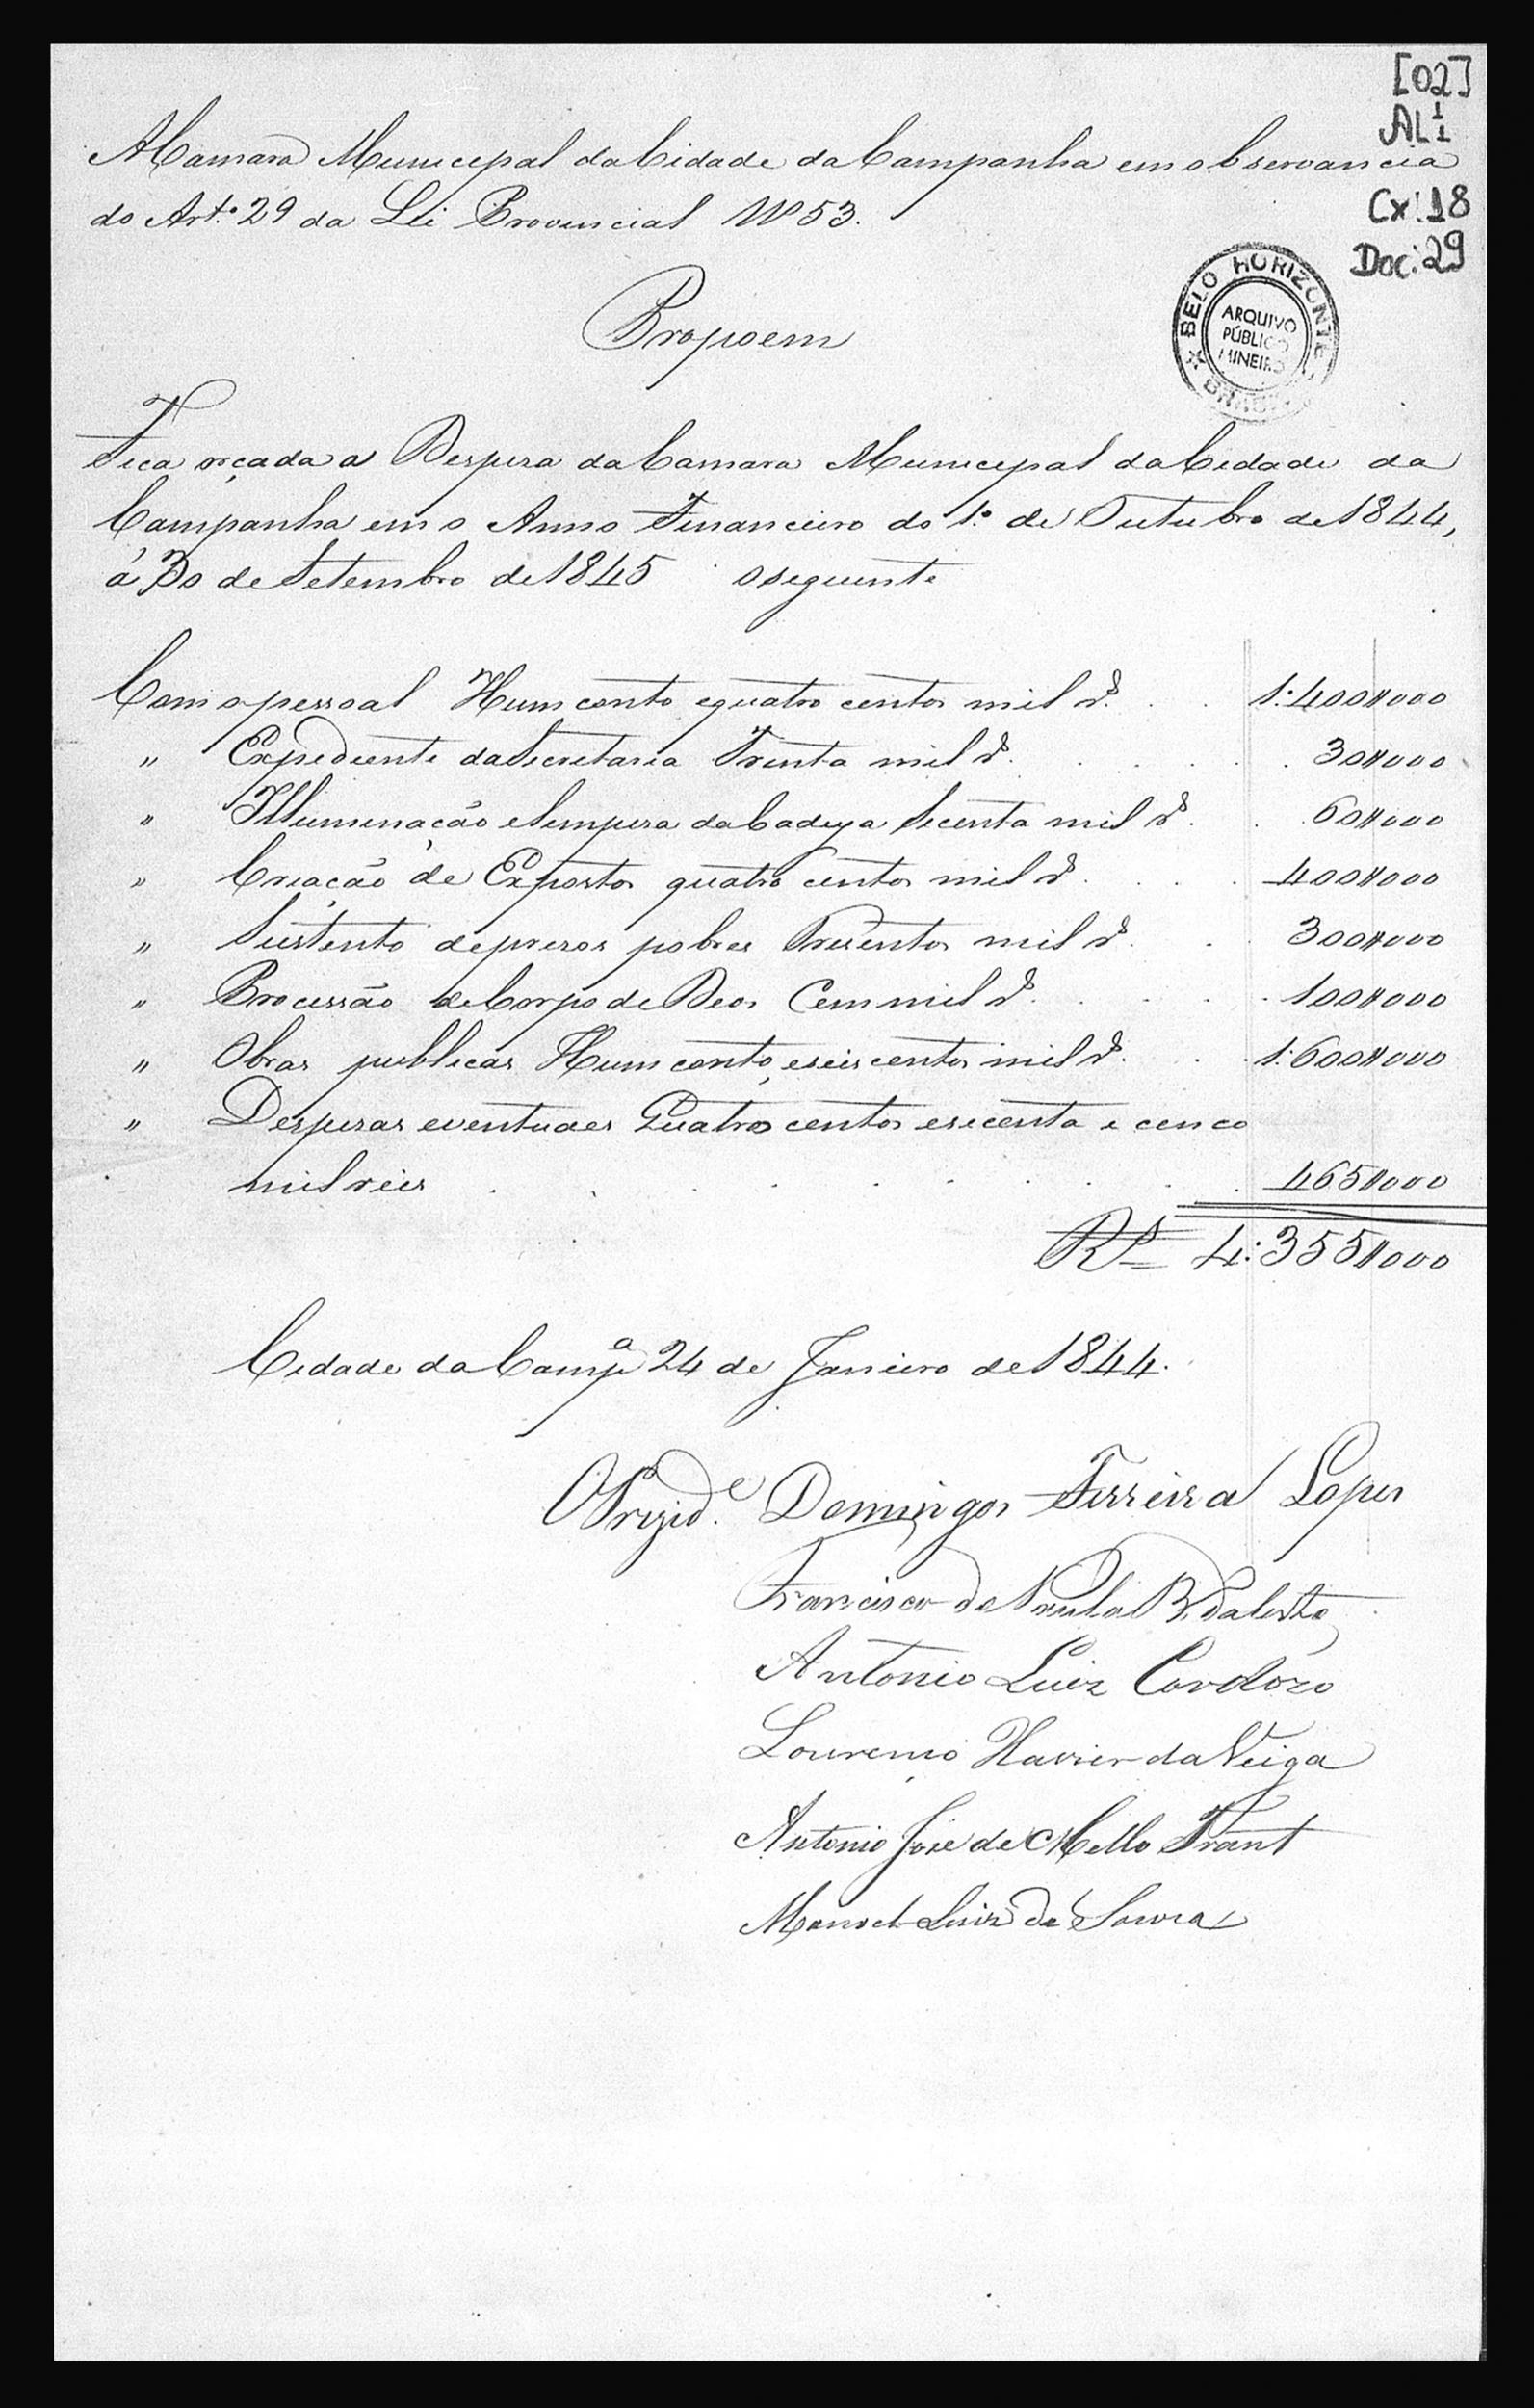 [02]
AL 1/1
Cx: 18
Doc: 29
A Camara Municipal da Cidade da Campanha em observancia
do Art.º 29 da Lei Provincial Nº 53.
BELO HORIZONTE
ARQUIVO
PÚBLICO
MINEIRO
BRASIL
Propoem
Fica orçada a Despesa da Camara Municipal da Cidade da
Campanha em o Anno Financeiro do 1.º de Outubro de 1844,
á 30 de Setembro de 1845 o seguinte
Com o pessoal Hum conto e quatro centos mil rs. 1:400$000
" Expediente da Secretaria Trinta mil rs. 30$000
" Illuminação e limpesa da Cadeya Secenta mil rs. 60$000
" Criação de Expostos quatro centos mil rs. 400$000
" Sustento de presos pobres Tresentos mil rs. 300$000
" Procissão de Corpo de Deos Cem mil rs. 100$000
" Obras publicas Hum conto, e seis centos mil rs. 1:600$000
" Despesas eventuaes Quatro centos e secenta e cinco
mil reis 465$000
Rs 4:355$000
Cidade da Campª 24 de Janeiro de 1844.
O Prezid.e Domingos Ferreira Lopes
Francisco de Paula B.
Antonio Luiz Cardozo
Lourenço Xavier da Veiga
Antonio José de Mello Trant
Manoel Luiz de Souza